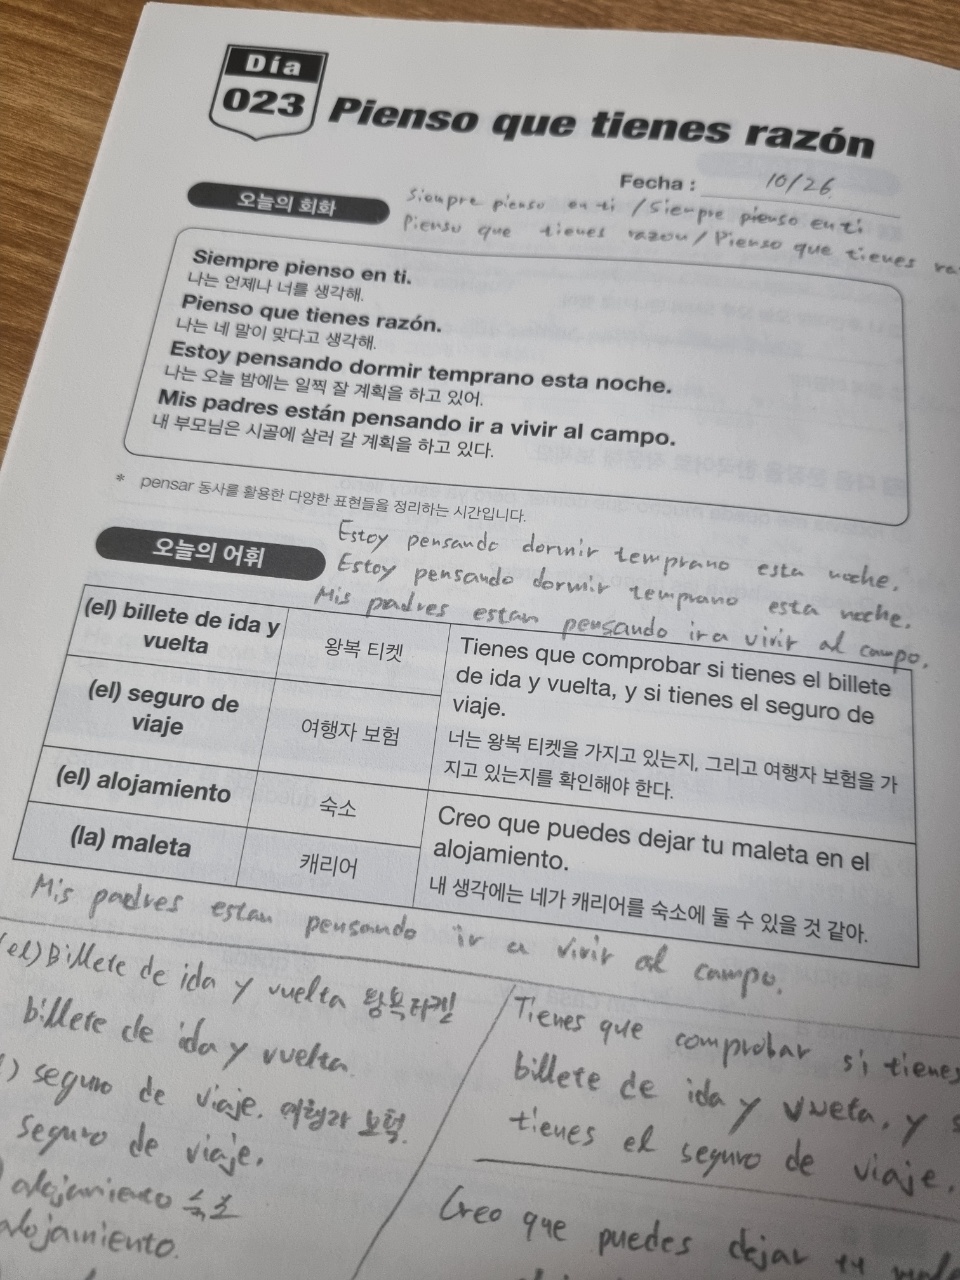 Día
023 Pienso que tienes razón
Fecha : 10/26.
오늘의 회화
Siempre pienso en ti / Siempre pienso en ti
Pienso que tienes razon / Pienso que tienes
Siempre pienso en ti.
나는 언제나 너를 생각해.
Pienso que tienes razón.
나는 네 말이 맞다고 생각해.
Estoy pensando dormir temprano esta noche.
나는 오늘 밤에는 일찍 잘 계획을 하고 있어.
Mis padres están pensando ir a vivir al campo.
내 부모님은 시골에 살러 갈 계획을 하고 있다.
* pensar 동사를 활용한 다양한 표현들을 정리하는 시간입니다.
오늘의 어휘
Estoy pensando dormir temprano esta noche.
Estoy pensando dormir temprano esta noche.
Mis padres estan pensando ir a vivir al campo.
(el) billete de ida y
vuelta
왕복 티켓
(el) seguro de
viaje
여행자 보험
Tienes que comprobar si tienes el billete
de ida y vuelta, y si tienes el seguro de
viaje.
너는 왕복 티켓을 가지고 있는지, 그리고 여행자 보험을 가
지고 있는지를 확인해야 한다.
(el) alojamiento
숙소
(la) maleta
캐리어
Creo que puedes dejar tu maleta en el
alojamiento.
내 생각에는 네가 캐리어를 숙소에 둘 수 있을 것 같아.
Mis padres estan pensando ir a vivir al campo.
(el) Billete de ida y vuelta 왕복티켓
billete de ida y vuelta.
) seguro de viaje. 여행자 보험.
seguro de viaje.
alojamiento 숙소
alojamiento.
Tienes que comprobar si tienes
billete de ida y vueta, y
tienes el seguro de viaje.
Creo que puedes dejar tu